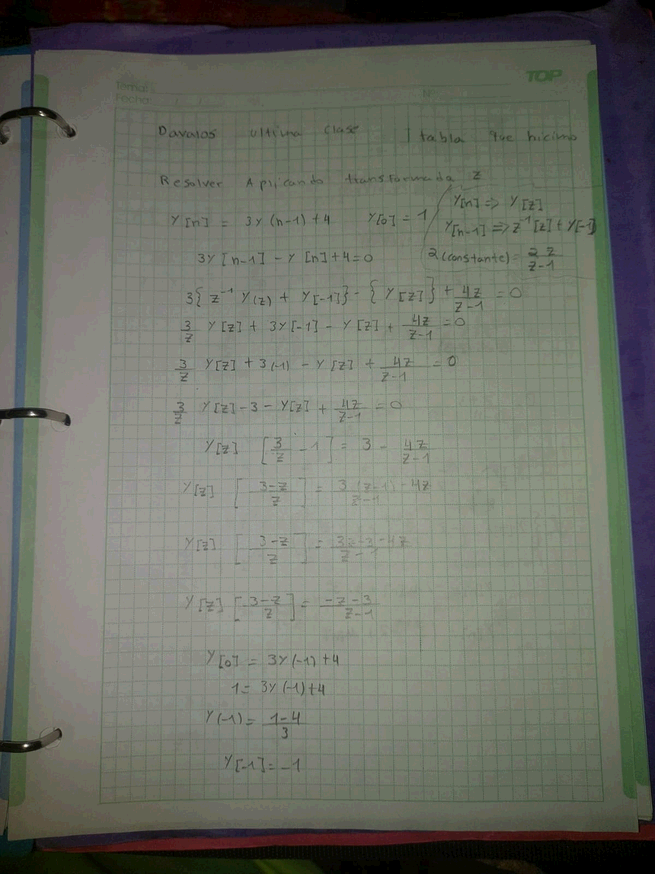 TOP
Tema:
Fecha:
Davalos ultima clase 1 tabla que hicimo
Resolver Aplicando transformada z
Y[n] => Y[z]
Y[n] = 3Y(n-1)+4 Y[0]=1
Y[n-1] => z⁻¹[z]+Y[-1]
2(constante) = 2z/z-1
3Y[n-1] - Y[n]+4=0
3{z⁻¹ Y(z) + Y[-1]} - {Y[z]} + 4z/z-1 = 0
3/z Y[z] + 3Y[-1] - Y[z] + 4z/z-1 = 0
3/z Y[z] + 3(-1) - Y[z] + 4z/z-1 = 0
3/z Y[z] - 3 - Y[z] + 4z/z-1 = 0
Y[z] [3/z - 1] = 3 - 4z/z-1
Y[z] [3-z/z] = 3(z-1)-4z/z-1
Y[z] [3-z/z] = 3z-3-4z/z-1
Y[z] [3-z/z] = -z-3/z-1
Y[0] = 3Y(-1)+4
1 = 3Y(-1)+4
Y(-1) = 1-4/3
Y[-1] = -1